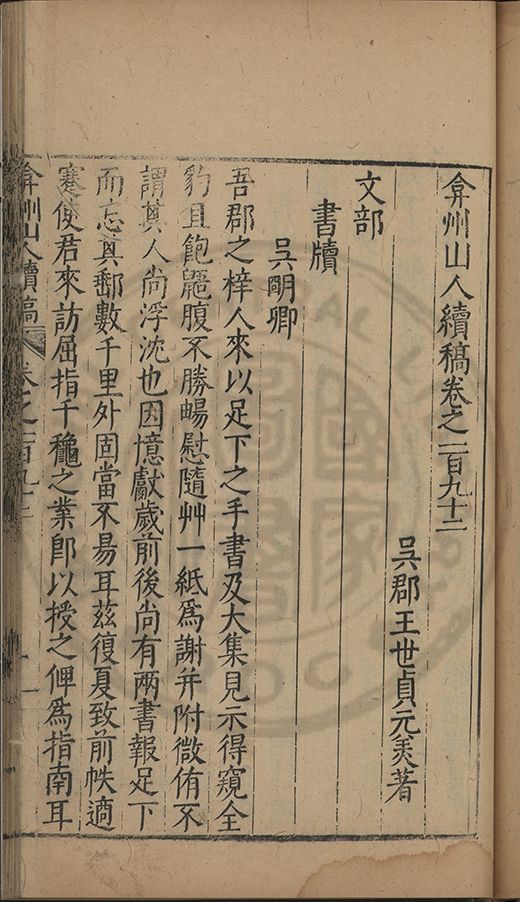 弇州山人續稿卷之一百九十二
吳郡王世貞元美著
文部
書牘
吳明卿
吾郡之梓人來以足下之手書及大集見示得窺全
豹且飽鼴腹不勝暢慰隨艸一紙爲謝并附微侑不
謂眞人尚浮沈也因憶獻歲前後尚有两書報足下
而忘其郵數千里外固當不易耳茲復夏致前帙適
蹇使君來訪屈指千穐之業郎以授之俾爲指南耳
弇州山人續稿 卷之一百九十二 一